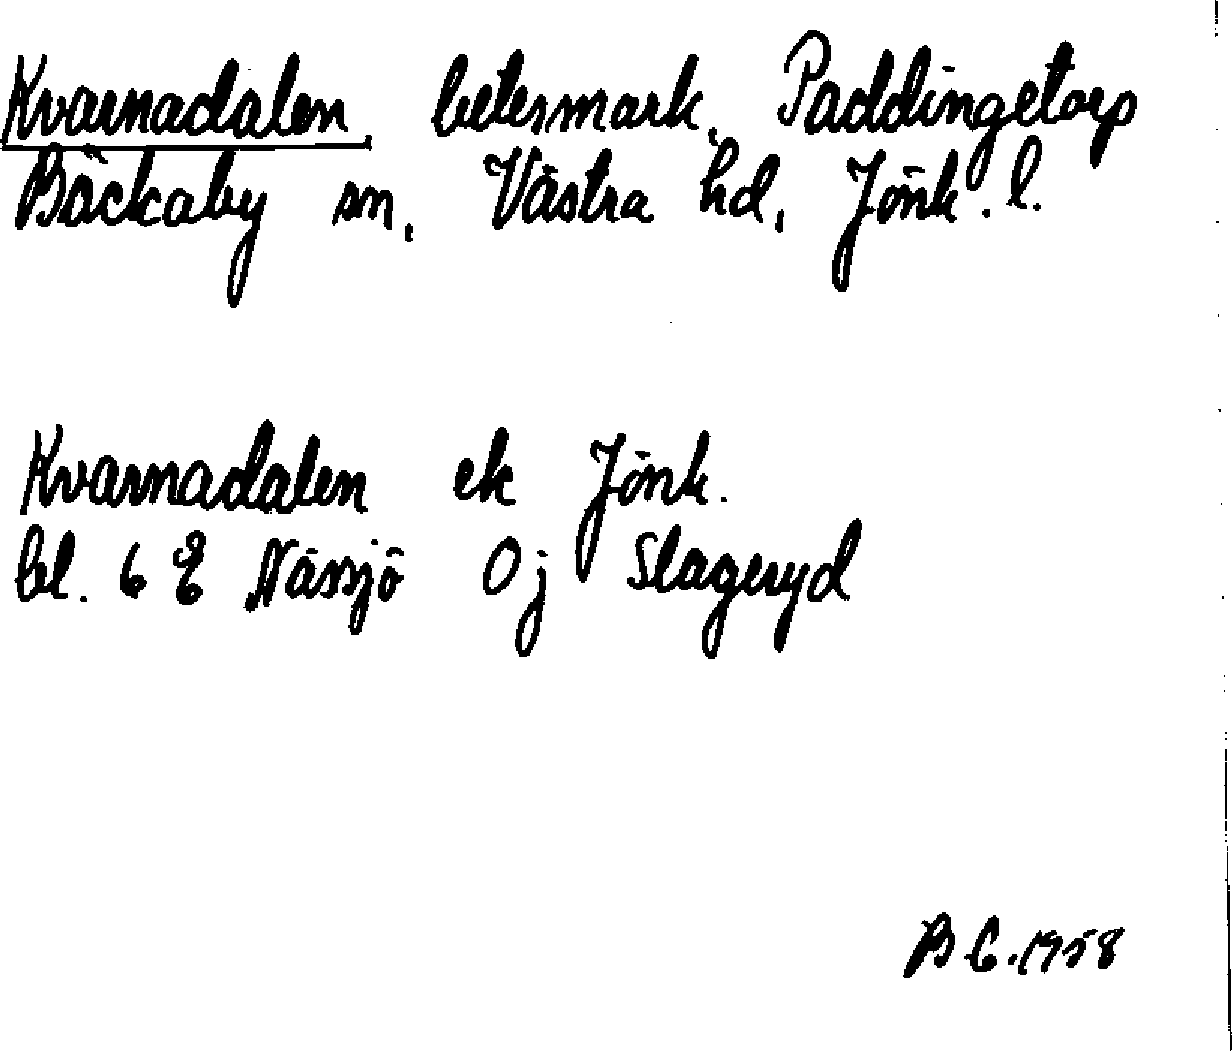 Kvarnadalen, betesmark, Paddingetorp
Bäckaby sn, Västra hd, Jönk. l.
Kvarnadalen ek Jönk.
bl. 6 E Nässjö Oj Slageryd
B G. 1958